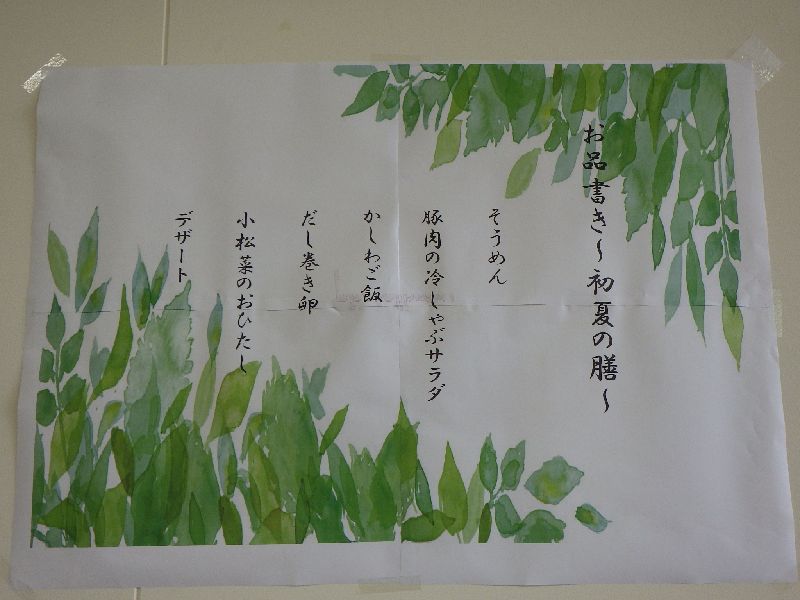 お品書き～初夏の膳～
そうめん
豚肉の冷しゃぶサラダ
かしわご飯
だし巻き卵
小松菜のおひたし
デザート